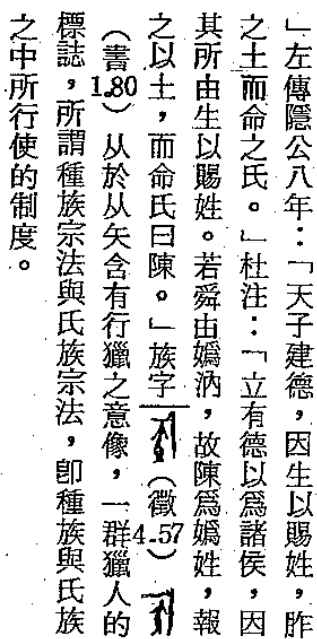 」左傳隱公八年：「天子建德，因生以賜姓，胙
之土而命之氏。」杜注：「立有德以爲諸侯，因
其所由生以賜姓。若舜由嬀汭，故陳爲嬀姓，報
之以土，而命氏曰陳。」族字（徵4.57）
（書1.80）从㫃从矢含有行獵之意像，一群獵人的
標誌，所謂種族宗法與氏族宗法，卽種族與氏族
之中所行使的制度。